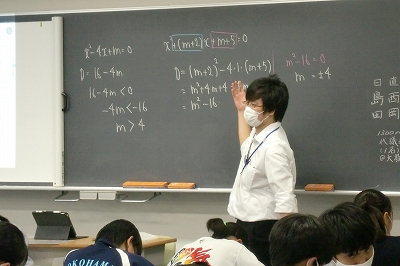 x²-4x+m=0
D=16-4m
16-4m<0
-4m<-16
m>4
x²+(m+2)x+m+5=0
D=(m+2)²-4·1·(m+5)
=m²+4m+4
=m²-16
m²-16=0
m=±4
日直
島西
田岡
YOKOHAMA